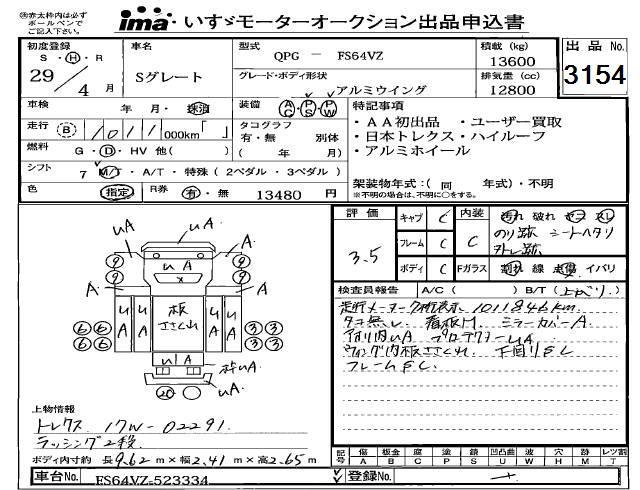 ㊟赤太枠内は必ず
ボールペンで
ご記入下さい。
ima いすゞモーターオークション出品申込書
初度登録 車名 型式 積載 (kg) 出品 No.
S・H・R QPG － FS64VZ 13600
29 / 4 月 Sグレート グレード・ボディ形状 排気量 (cc) 3154
アルミウイング 12800
車検 年 月・抹消 装備 AC・PS・PW 特記事項
走行 (B) 1011 000km「 」 タコグラフ
有・無 別体
( 年 月)
・AA初出品 ・ユーザー買取
・日本トレクス・ハイルーフ
・アルミホイール
燃料 G・D・HV 他( )
シフト 7 M/T・A/T・特殊 (2ペダル・3ペダル)
色 指定 R券 有・無 13480 円
架装物年式:( 同 年式)・不明
※不明の場合は、不明に○をする。
評価 キャブ C 内装 汚れ 破れ コゲ スレ
3.5 フレーム C C のり跡 シートヘタリ
ストレ跡
ボディ C Fガラス 割れ 線 点傷 イバリ
検査員報告 A/C ( ) B/T (上べり)
走行メーター桁表示 1011846km
タコ無し 看板M ミラーカバーA
プロテクターuA
ウィング内板ささくれ 下回りSC
フレームSC
uA A
A uA A
uA uA 板ささくれ uA uA
uA 枠uA
uA
⑨ ⑨ ⑨ ⑨
⑥ ⑥ ⑥ ⑥ ③ ③ ③ ③
⑳
上物情報
トレクス 17W-02291
ラッシング2段
ボディ内寸約 長9.62m×幅2.41m×高2.65m
記号 傷 A 板金 B 腐 C 塗 P 錆 S 凹凸曲 U 波 W 穴 H 跡 M 止 T レンズ割
車台No. FS64VZ-523334 登録No. ー